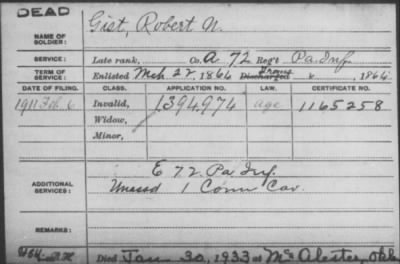 DEAD
NAME OF SOLDIER: Gist, Robert N.
SERVICE: Late rank, Co. A 72 Reg't Pa. Inf.
TERM OF SERVICE: Enlisted Mch 22, 1864 Discharged x, 1864
DATE OF FILING. CLASS. APPLICATION NO. LAW. CERTIFICATE NO.
1911 Feb. 6 Invalid, 1394974 age 1165258
Widow,
Minor,
ADDITIONAL SERVICES: E 72 Pa Inf.
Unassd 1 Conn Cav.
REMARKS:
Died Jan 30, 1933 at McAlester, Okla